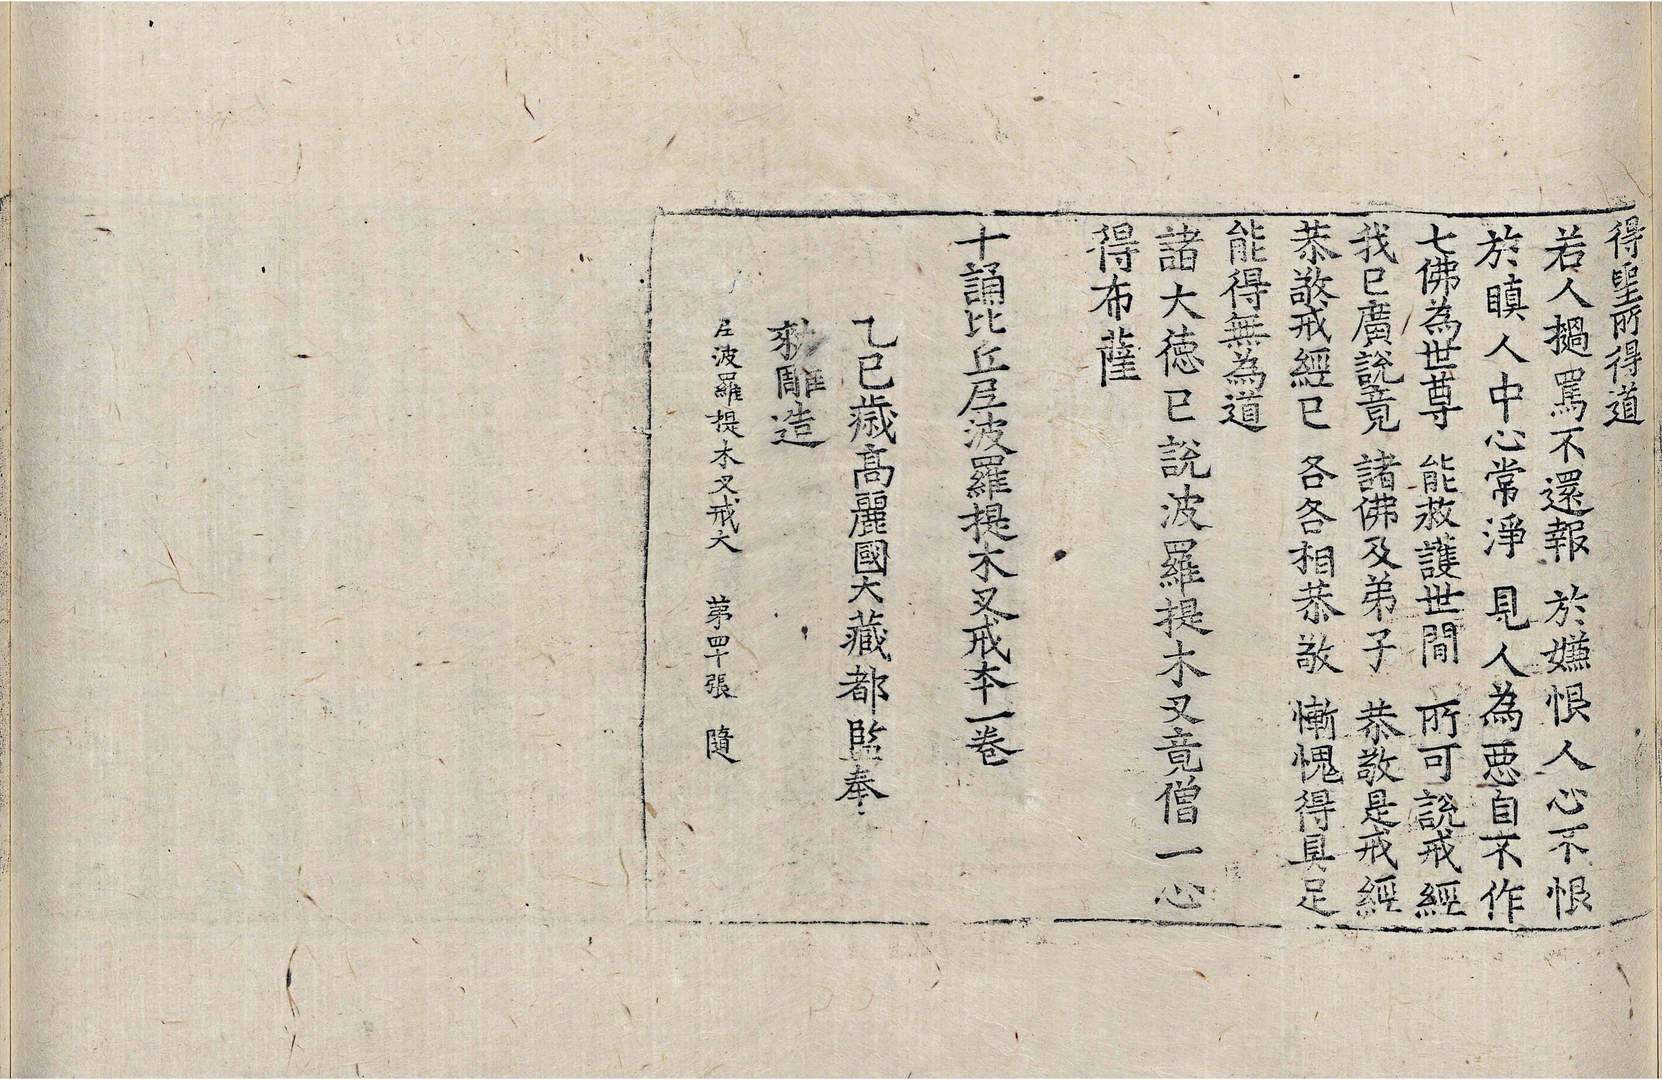 得聖所得道
若人撾罵不還報 於嫌恨人心不恨
於瞋人中心常淨 見人為惡自不作
七佛為世尊 能救護世間 所可說戒經
我已廣說竟 諸佛及弟子 恭敬是戒經
恭敬戒經已 各各相恭敬 慚愧得具足
能得無為道
諸大德已說波羅提木叉竟僧一心
得布薩
十誦比丘尼波羅提木叉戒夲一卷
乙巳歲高麗國大藏都監奉
勑雕造
尼波羅提木叉戒 第四十張 隨